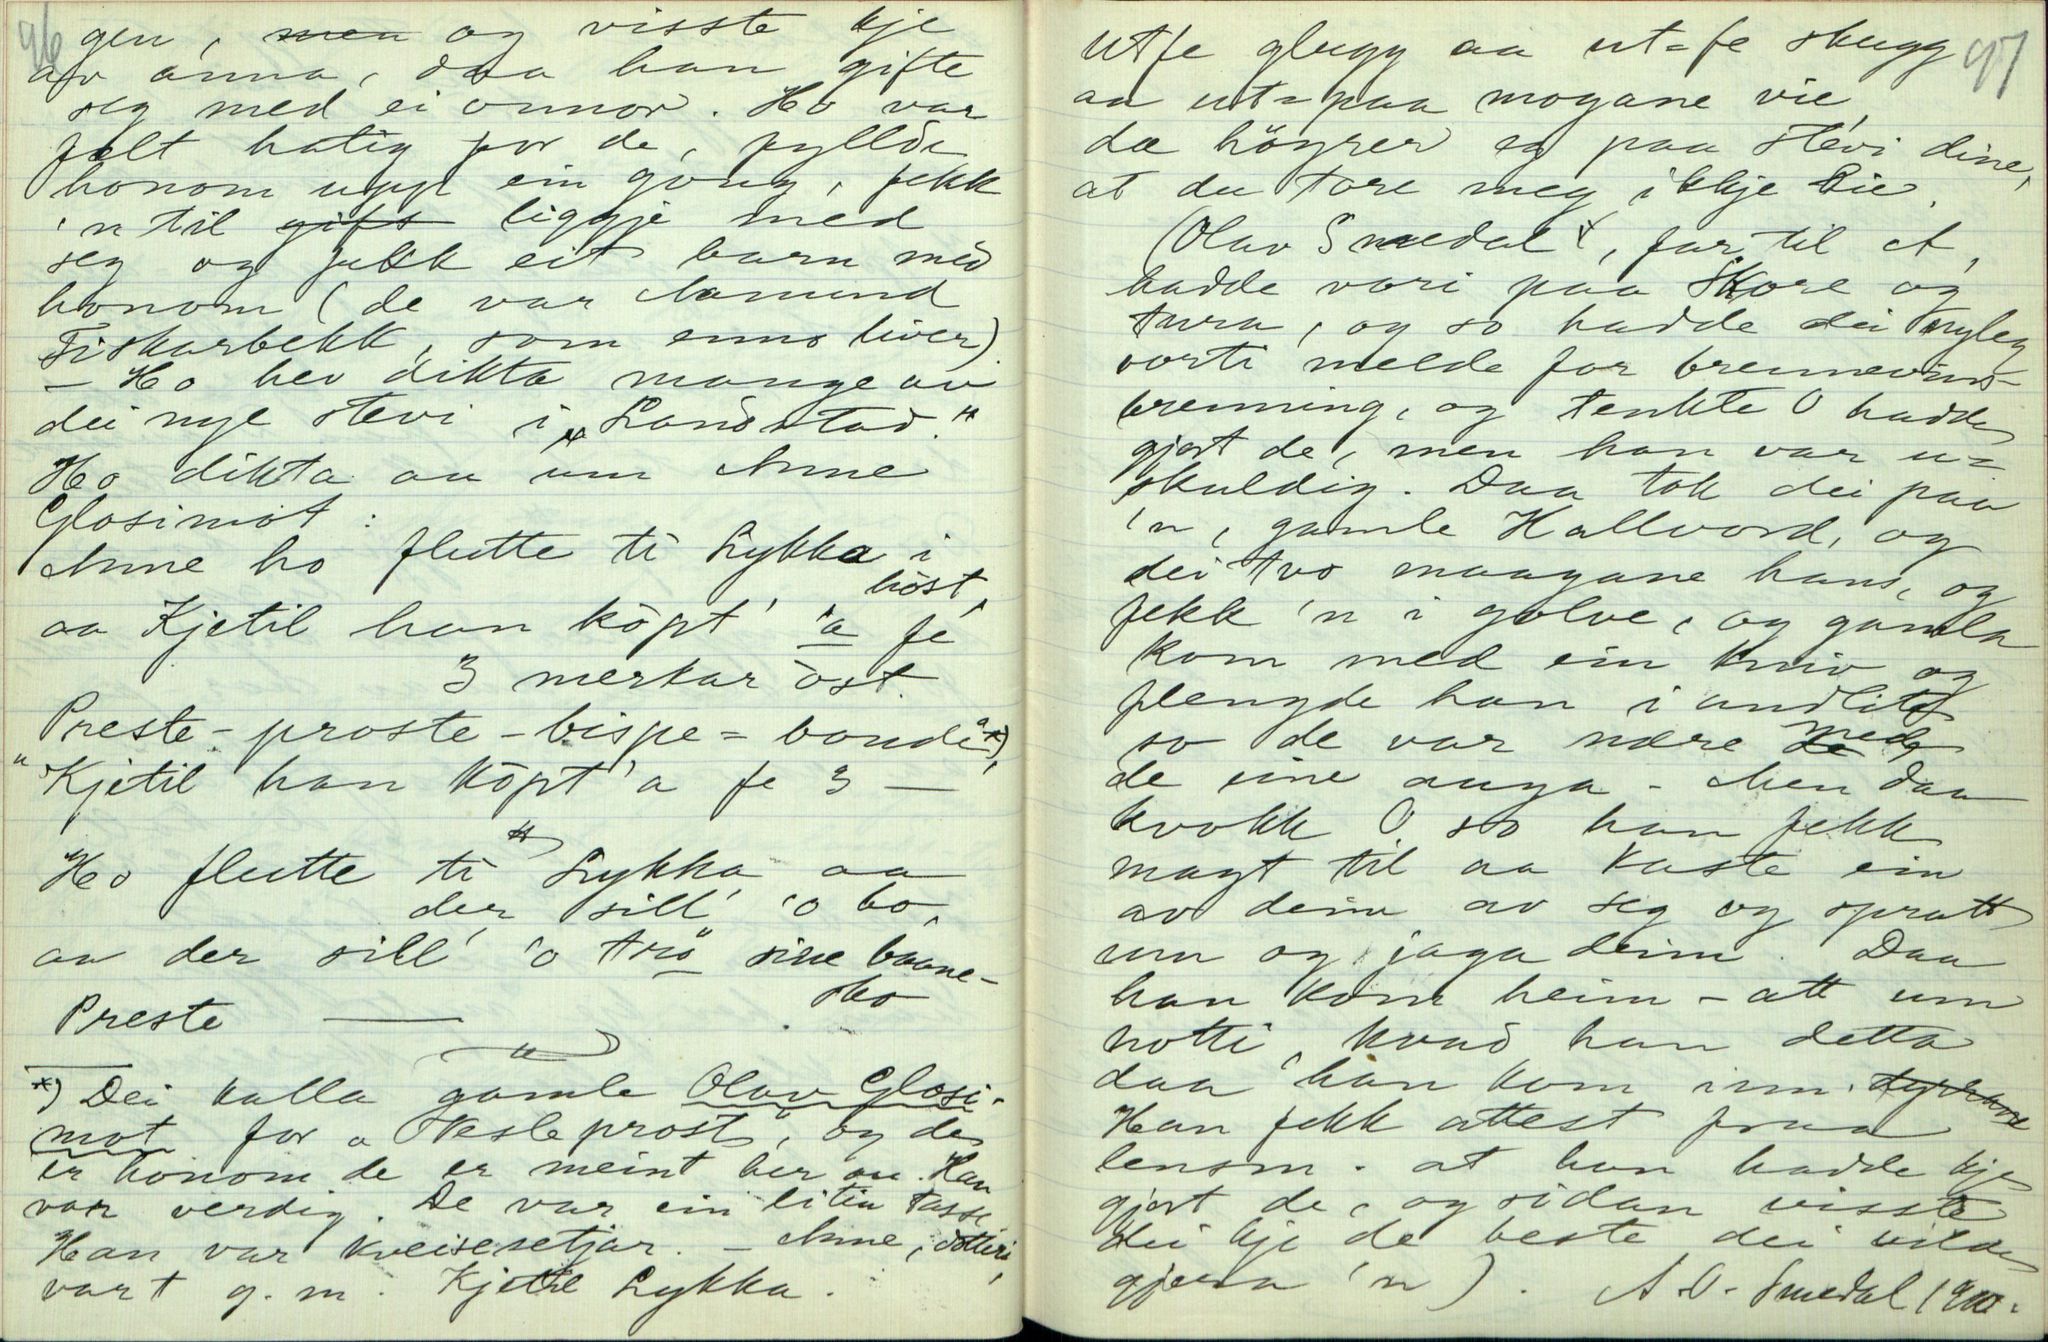 96
gen, men og visste kje
av anna, daa han gifte
seg med ei onnor. Ho var
fælt hatig for de, fyllde
honom upp ein gong, fekk
'n til gift liggje med
seg og fekk eit barn med
honom (de var Aamund
Fiskarbekk, som enno liver)
- Ho hev dikta mange av
dei nye stevi i "Landstad."
Ho dikta aa um Anne
Glosimot:
Anne ho flutte ti Lykkja i
höst,
aa Kjetil han köpt' 'a fe
3 merkar öst.
Preste-proste-bispe-bonde *),
"Kjetil han köpt 'a fe 3 —
Ho flutte ti Lykkja aa
der sill' 'o bo,
aa der sill' 'o trö sine baane-
sko
Preste —
*) Dei kalla gamle Olav Glosi-
mot for "Vesleprost", og de
er honom de er meint her au. Han
var verdig. De var ein liten tasse
Han var kveisesetjar. - Anne, dotteri,
vart g. m. Kjetil Lykkja.
97
utfe glugg aa ut-fe skugg
aa ut-paa mogane vie,
da höyrer eg paa stevi dine,
at du tore meg ikkje bie.
(Olav Smedal, far til A,
hadde vori paa Skore og
tura, og so hadde dei nyleg
vorti melde for brennevins-
brenning, og tenkte O hadde
gjort de, men han var u-
skuldig. Daa tok dei paa
'n, gamle Hallvord, og
dei tvo maagane hans, og
fekk 'n i golve, og gamla
kom med ein kniv og
flengde han i andlite
so de var nære de med
de eine auga. Men daa
kvokk O so han fekk
magt til aa kaste ein
av deim av seg og spratt
um og jaga deim. Daa
han kom heim-att um
notti, kvad han detta
daa han kom inn.
Han fekk attest fraa
lensm. at han hadde kje
gjort de, og sidan visste
dei kje de beste dei vilde
gjera 'n). A. O. Smedal 1910.